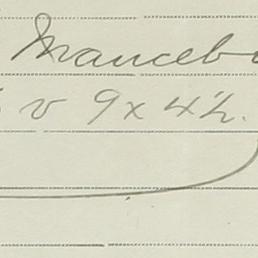 Mancebo
v 9x4½.